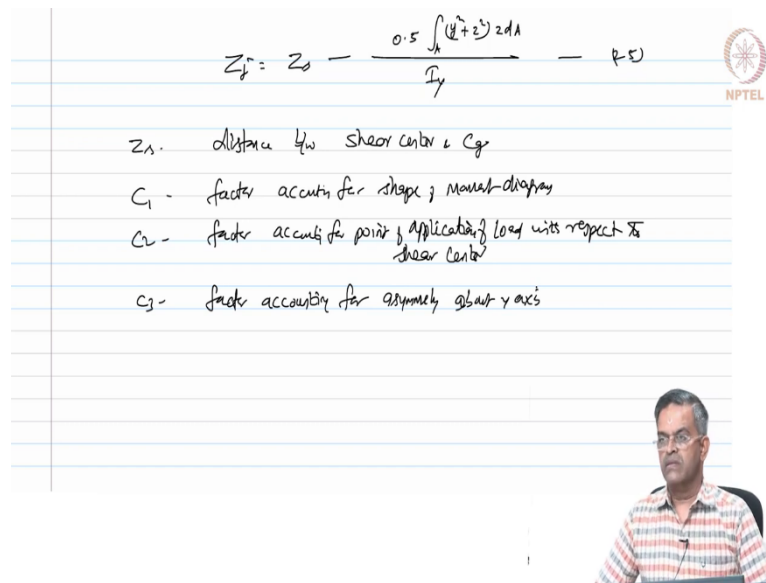 Zj = Zs - 0.5 ∫A (y² + z²) z dA / Iy — (25)
NPTEL
Zs. distance b/w shear center & Cg
C1 - factor accountin for shape of moment diagram
C2 - factor accounti for point of application of load with respect to
shear center
C3 - factor accounting for asymmety about y axis